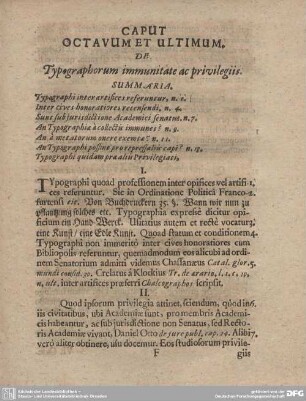 CAPUT
OCTAVUM ET ULTIMUM.
DE
Typographorum immunitate ac privilegiis.
SUMMARIA.
Typographi inter artifices referuntur, n. 1.
Inter cives honoratiores recensendi, n. 4.
Sunt sub jurisdictione Academici senatus. n. 7.
An Typographia à collectis immunes? n. 9.
An à metatorum onere exemti? n. 11.
An Typographi possint pro repressaliis capi? n. 13.
Typographi quidam præ aliis Privilegiati,
I.
TYpographi quoad professionem inter opifices vel artifi- 1.
ces referuntur. Sic in Ordinatione Politici Franco-2.
furtensi eit. Von Buchdruckern 25. §. Wenn wir nun zu
pflantzung solches etc. Typographia expresse dicitur opi-
ficium ein Hand-Werck. Usitatius autem et rectè vocatur 3.
eine Kunst / eine Edle Kunst. Quoad statum et conditionem 4.
Typographi non immeritò inter cives honoratiores cum
Bibliopolis referuntur, quemadmodum eos alicubi ad ordi-
nem Senatorium admitti videmus Chassanæus Catal. glor. 5.
mundi consid. 30. Crelatus à Klockius Tr. de ærario, l. 1. c. 19,
n, ult. inter artifices præfert Chalcographos scripsit.
II.
Quod ipsorum privilegia attinet, sciendum, quòd in 6.
iis civitatibus, ubi Academiæ sunt, pro membris Academi-
cis habeantur, ac sub jurisdictione non Senatus, sed Recto-
ris Academiæ vivant, Daniel Otto de jure publ, cap. 14. Alibi 7.
verò aliter obtinere, usu docemur. Eos studiosorum privile-
F
giis